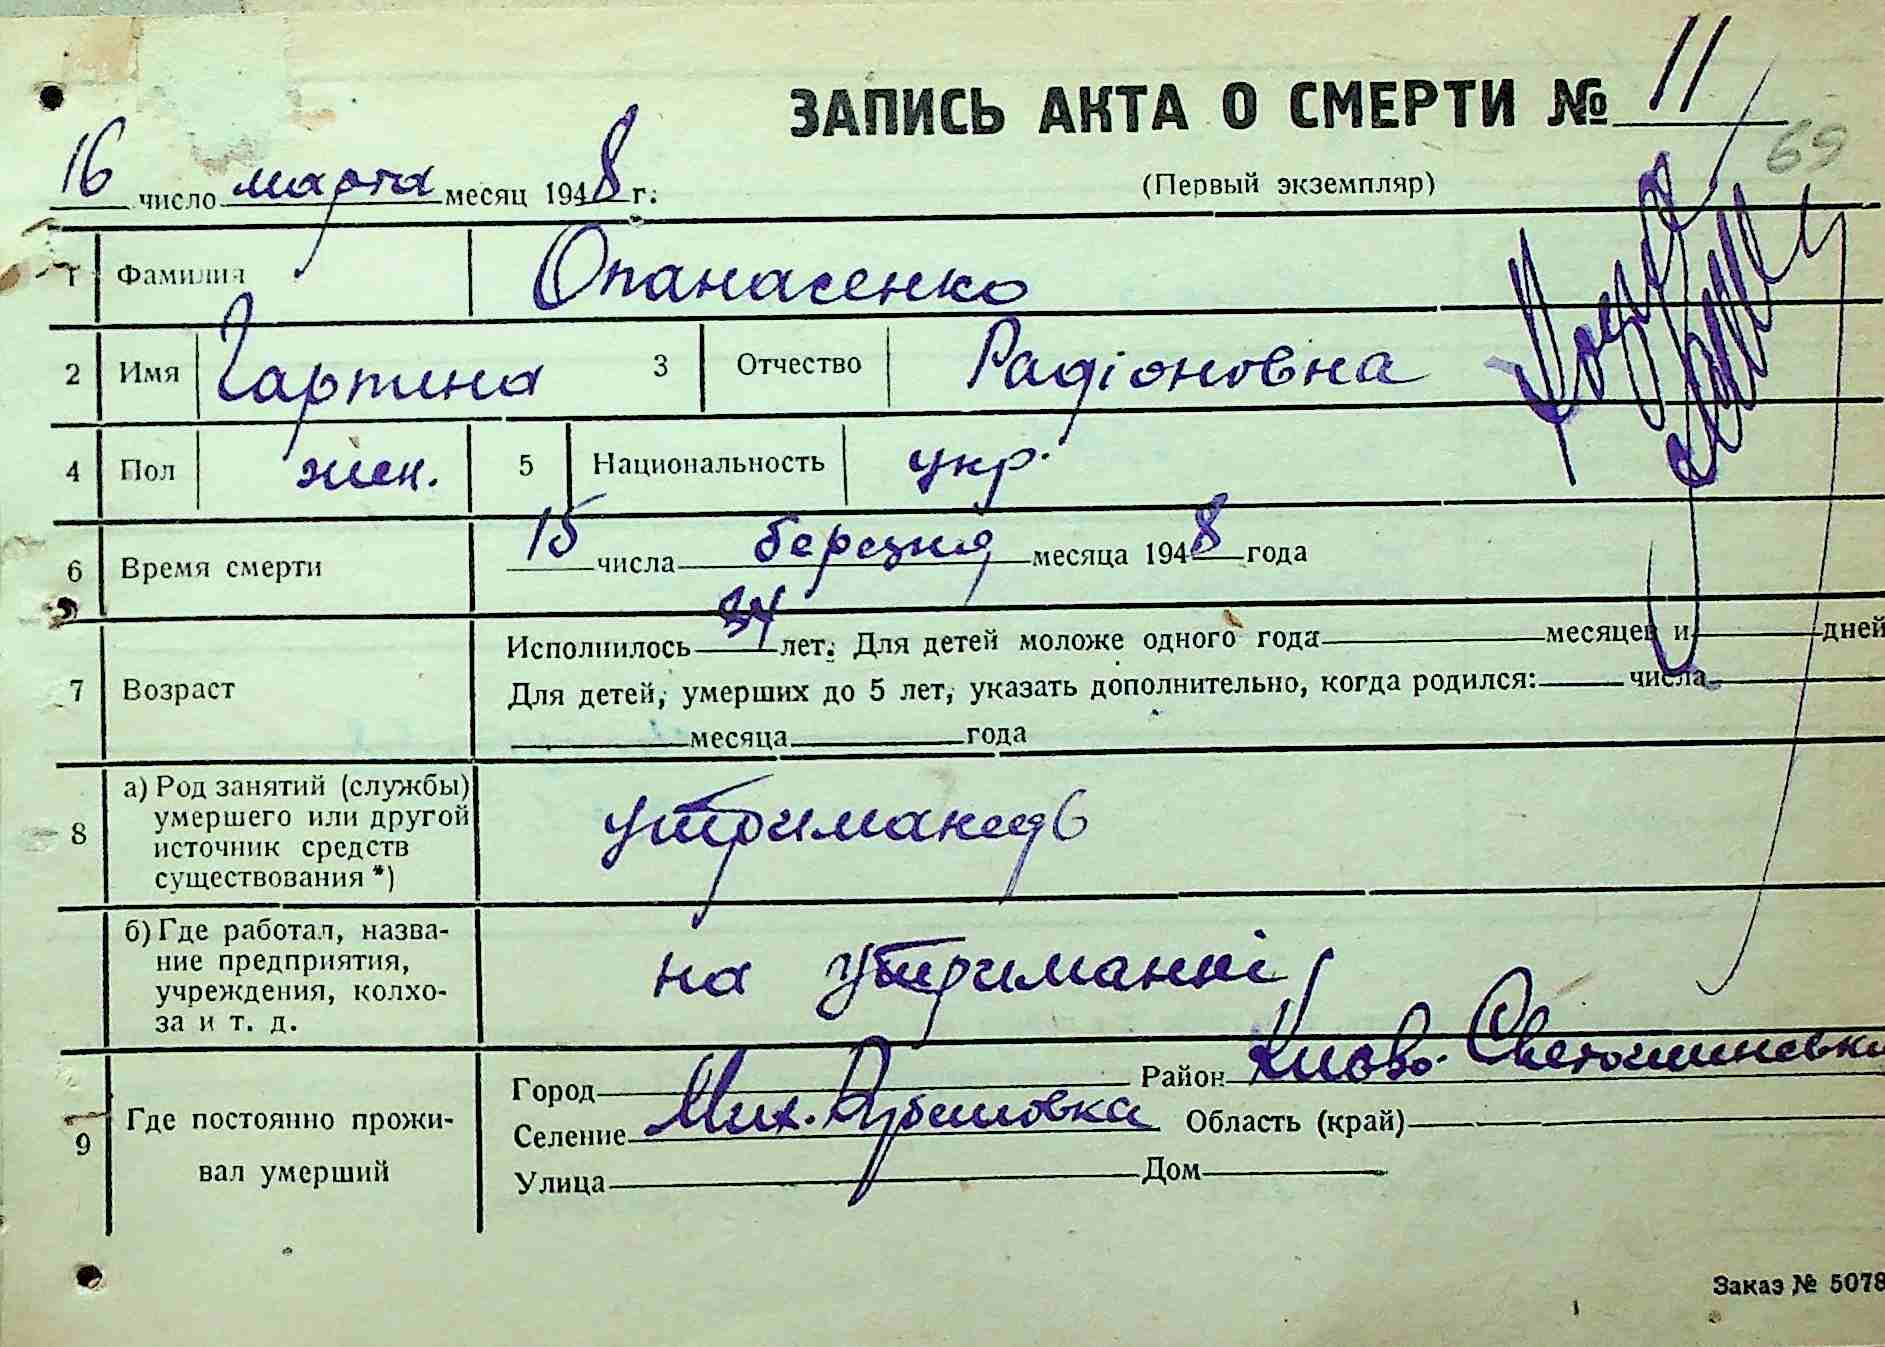 ЗАПИСЬ АКТА О СМЕРТИ № 11
69
16 число марта месяц 1948 г.
(Первый экземпляр)
1 Фамилия Опанасенко
2 Имя 3 Отчество Радіоновна
4 Пол жен. 5 Национальность укр.
6 Время смерти 15 числа березня месяца 1948 года
7 Возраст
Исполнилось 34 лет. Для детей моложе одного года месяцев и дней
Для детей, умерших до 5 лет, указать дополнительно, когда родился: числа
месяца года
8 а) Род занятий (службы)
умершего или другой
источник средств
существования *)
б) Где работал, назва-
ние предприятия,
учреждения, колхо-
за и т. д.
на утриманні
9 Где постоянно прожи-
вал умерший
Город Район Киово-
Селение Мих. Рубешовка Область (край)
Улица Дом
Заказ № 5078